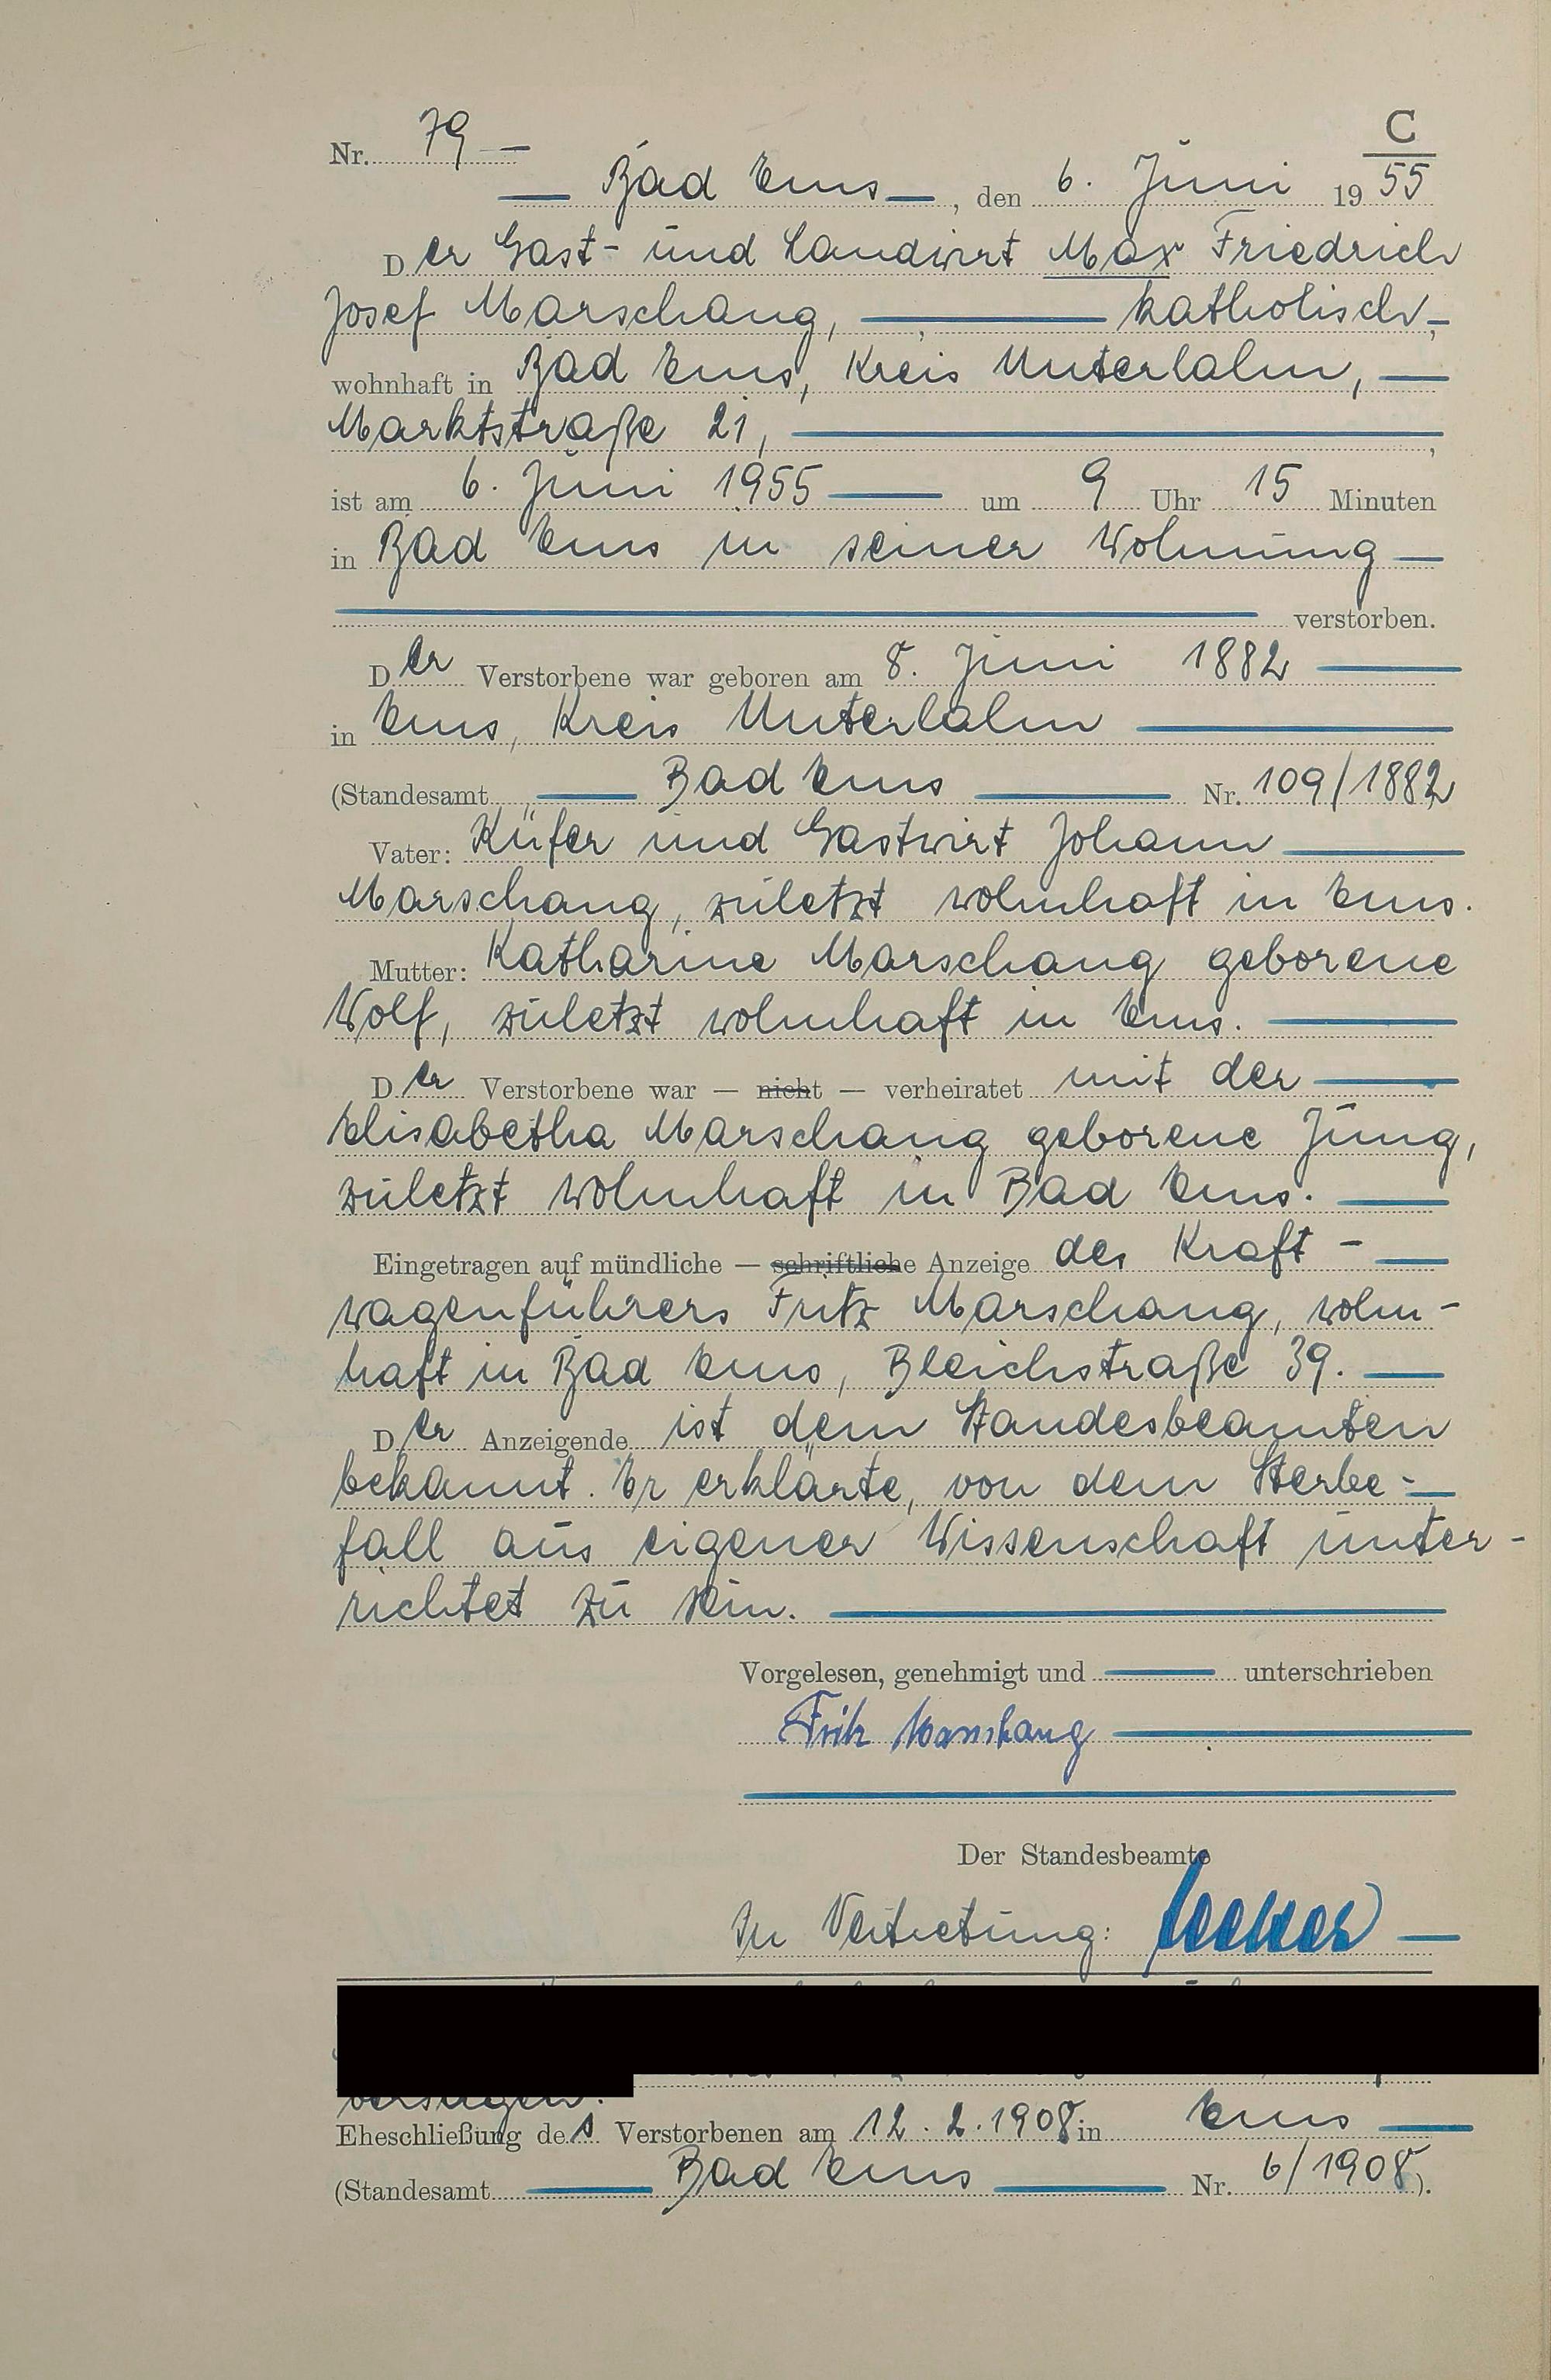 C
Nr. 79 —
— Bad Ems —, den 6. Juni 1955
Der Gast- und Landwirt Max Friedrich
Josef Marschang, — katholisch —,
wohnhaft in Bad Ems, Kreis Unterlahn, —
Marktstraße 21, —,
ist am 6. Juni 1955 — um 9 Uhr 15 Minuten
in Bad Ems in seiner Wohnung —
— verstorben.
Der Verstorbene war geboren am 8. Juni 1882 —
in Ems, Kreis Unterlahn —
(Standesamt — Bad Ems — Nr. 109/1882
Vater: Küfer und Gastwirt Johann —
Marschang, zuletzt wohnhaft in Ems.
Mutter: Katharine Marschang geborene
Wolf, zuletzt wohnhaft in Ems. —
Der Verstorbene war — nicht — verheiratet mit der —
Elisabetha Marschang geborene Jung,
zuletzt wohnhaft in Bad Ems. —
Eingetragen auf mündliche — schriftliche Anzeige des Kraft- —
wagenführers Fritz Marschang, wohn-
haft in Bad Ems, Bleichstraße 39. —
Der Anzeigende ist dem Standesbeamten
bekannt. Er erklärte, von dem Sterbe-
fall aus eigener Wissenschaft unter-
richtet zu sein. —
Vorgelesen, genehmigt und — unterschrieben
Fritz Marschang —
Der Standesbeamte
In Vertretung: —
Eheschließung des Verstorbenen am 12.2.1908 in Ems —
(Standesamt — Bad Ems — Nr. 6/1908).